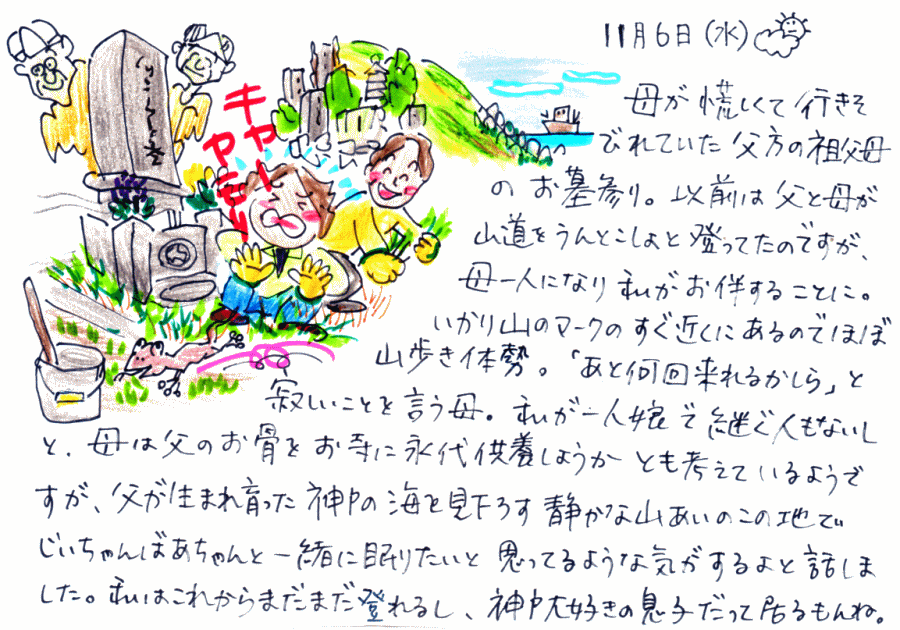 11月6日(水)
母が慌しくて行きそ
びれていた父方の祖父母
のお墓参り。以前は父と母が
山道をうんとこしょと登ってたのですが、
母一人になり私がお伴することに。
いかり山のマークのすぐ近くにあるのでほぼ
山歩き体勢。「あと何回来れるかしら」と
寂しいことを言う母。私が一人娘で継ぐ人もないし
と、母は父のお骨をお寺に永代供養しようかとも考えているようで
すが、父が生まれ育った神戸の海を見下ろす静かな山あいのこの地で
じいちゃんばあちゃんと一緒に眠りたいと思ってるような気がするよと話しま
した。私はこれからまだまだ登れるし、神戸大好きの息子だって居るもんね。
キャー
ヤモリ